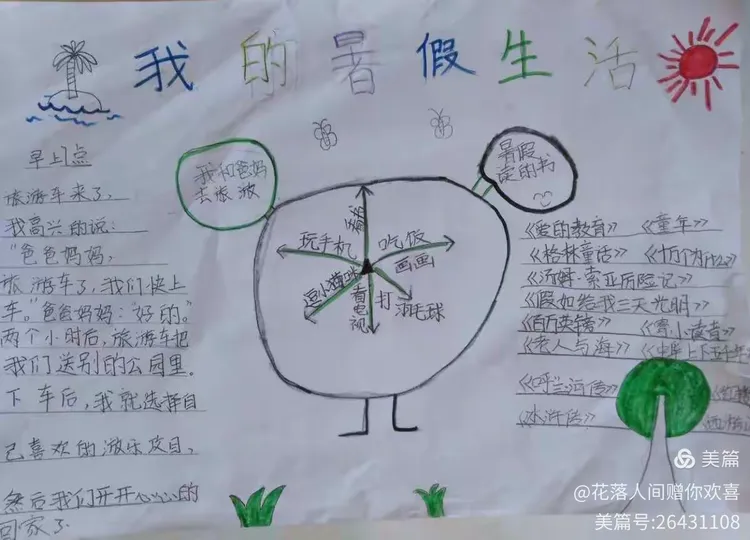 我的暑假生活
早上1点
旅游车来了，
我高兴的说：
"爸爸妈妈，
旅游车了，我们快上
车。"爸爸妈妈："好的。"
两个小时后，旅游车把
我们送别的公园里。
下车后，我就选择自
己喜欢的游乐项目，
然后我们开开心心的
回家了
我和爸妈
去旅游
暑假
读的书
玩手机
吃饭
画画
逗猫咪
看电视
打羽毛球
《爱的教育》 《童年》
《格林童话》 《十万个为什么》
《汤姆·索亚历险记》
《假如给我三天光明》
《百万英镑》 《寄小读者》
《老人与海》 《中华上下五千年
《呼兰河传》
《水浒传》
美篇
@花落人间赠你欢喜
美篇号:26431108